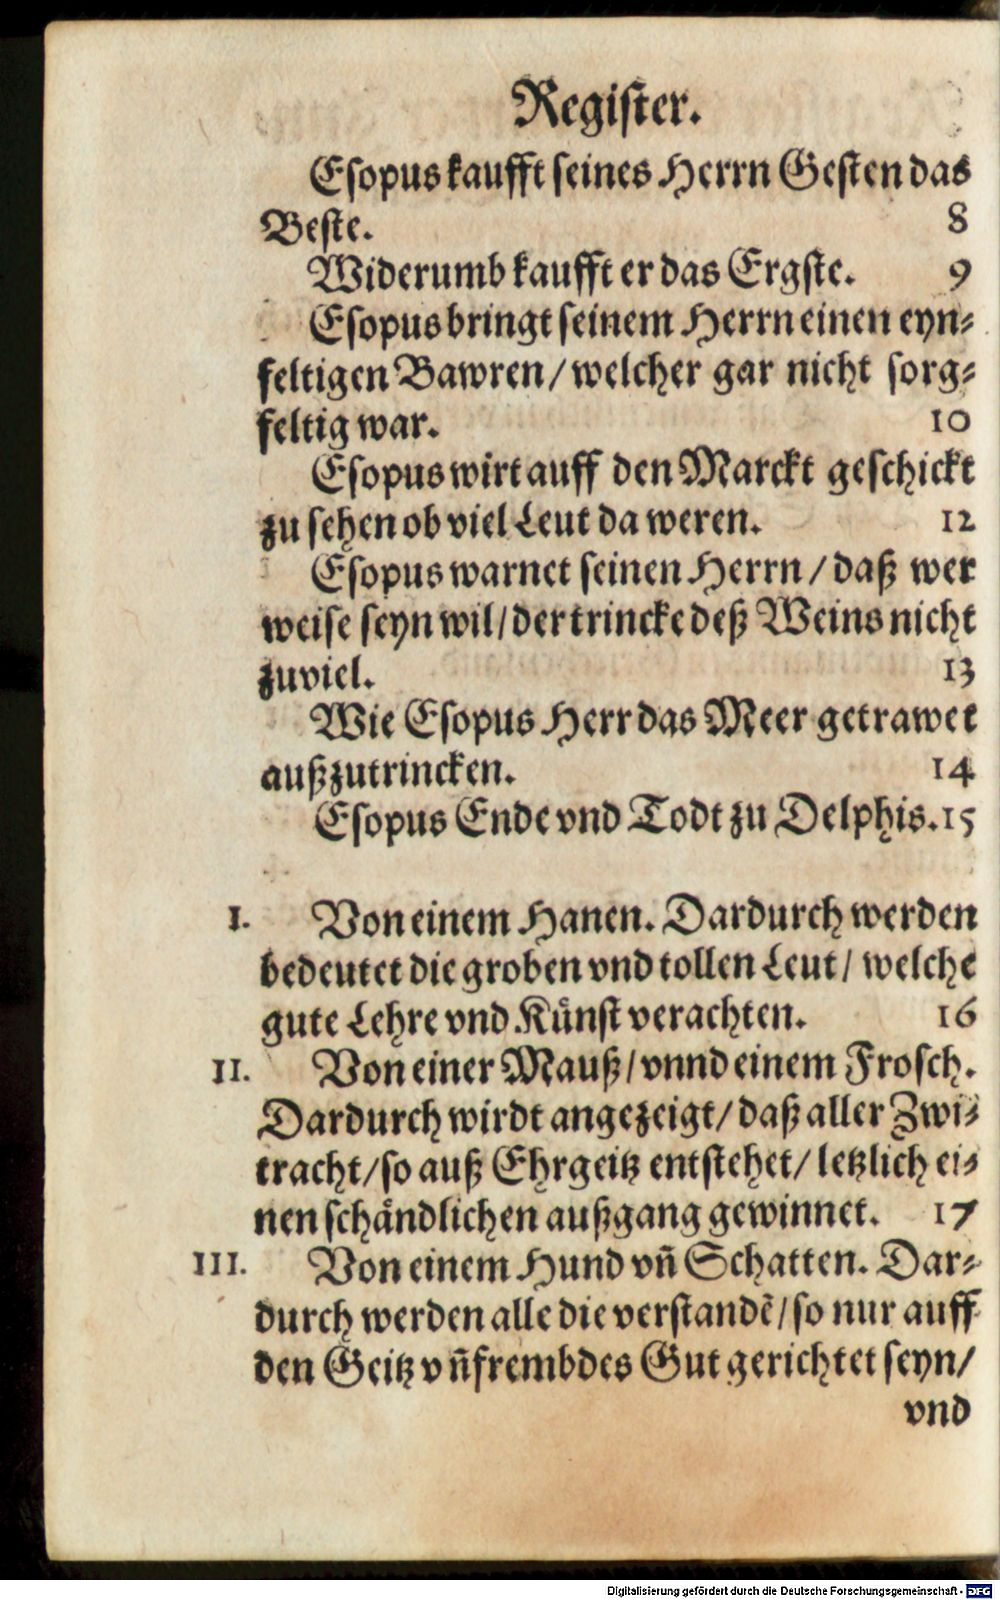 Register.
Esopus kaufft seines Herrn Gesten das
Beste. 8
Widerumb kaufft er das Ergste. 9
Esopus bringt seinem Herrn einen eyn-
feltigen Bawren/ welcher gar nicht sorg-
feltig war. 10
Esopus wirt auff den Marckt geschickt
zu sehen ob viel Leut da weren. 12
Esopus warnet seinen Herrn/ daß wer
weise seyn wil/ der trincke deß Weins nicht
zuviel. 13
Wie Esopus Herr das Meer getrawet
außzutrincken. 14
Esopus Ende vnd Todt zu Delphis. 15
I. Von einem Hanen. Dardurch werden
bedeutet die groben vnd tollen Leut/ welche
gute Lehre vnd Kůnst verachten. 16
II. Von einer Mauß/ vnnd einem Frosch.
Dardurch wirdt angezeigt/ daß aller Zwi-
tracht/ so auß Ehrgeitz entstehet/ letzlich ei-
nen schåndlichen außgang gewinnet. 17
III. Von einem Hund vñ Schatten. Dar-
durch werden alle die verstandẽ/ so nur auff
den Geitz vñ frembdes Gut gerichtet seyn/
vnd
Digitalisierung gefördert durch die Deutsche Forschungsgemeinschaft - DFG